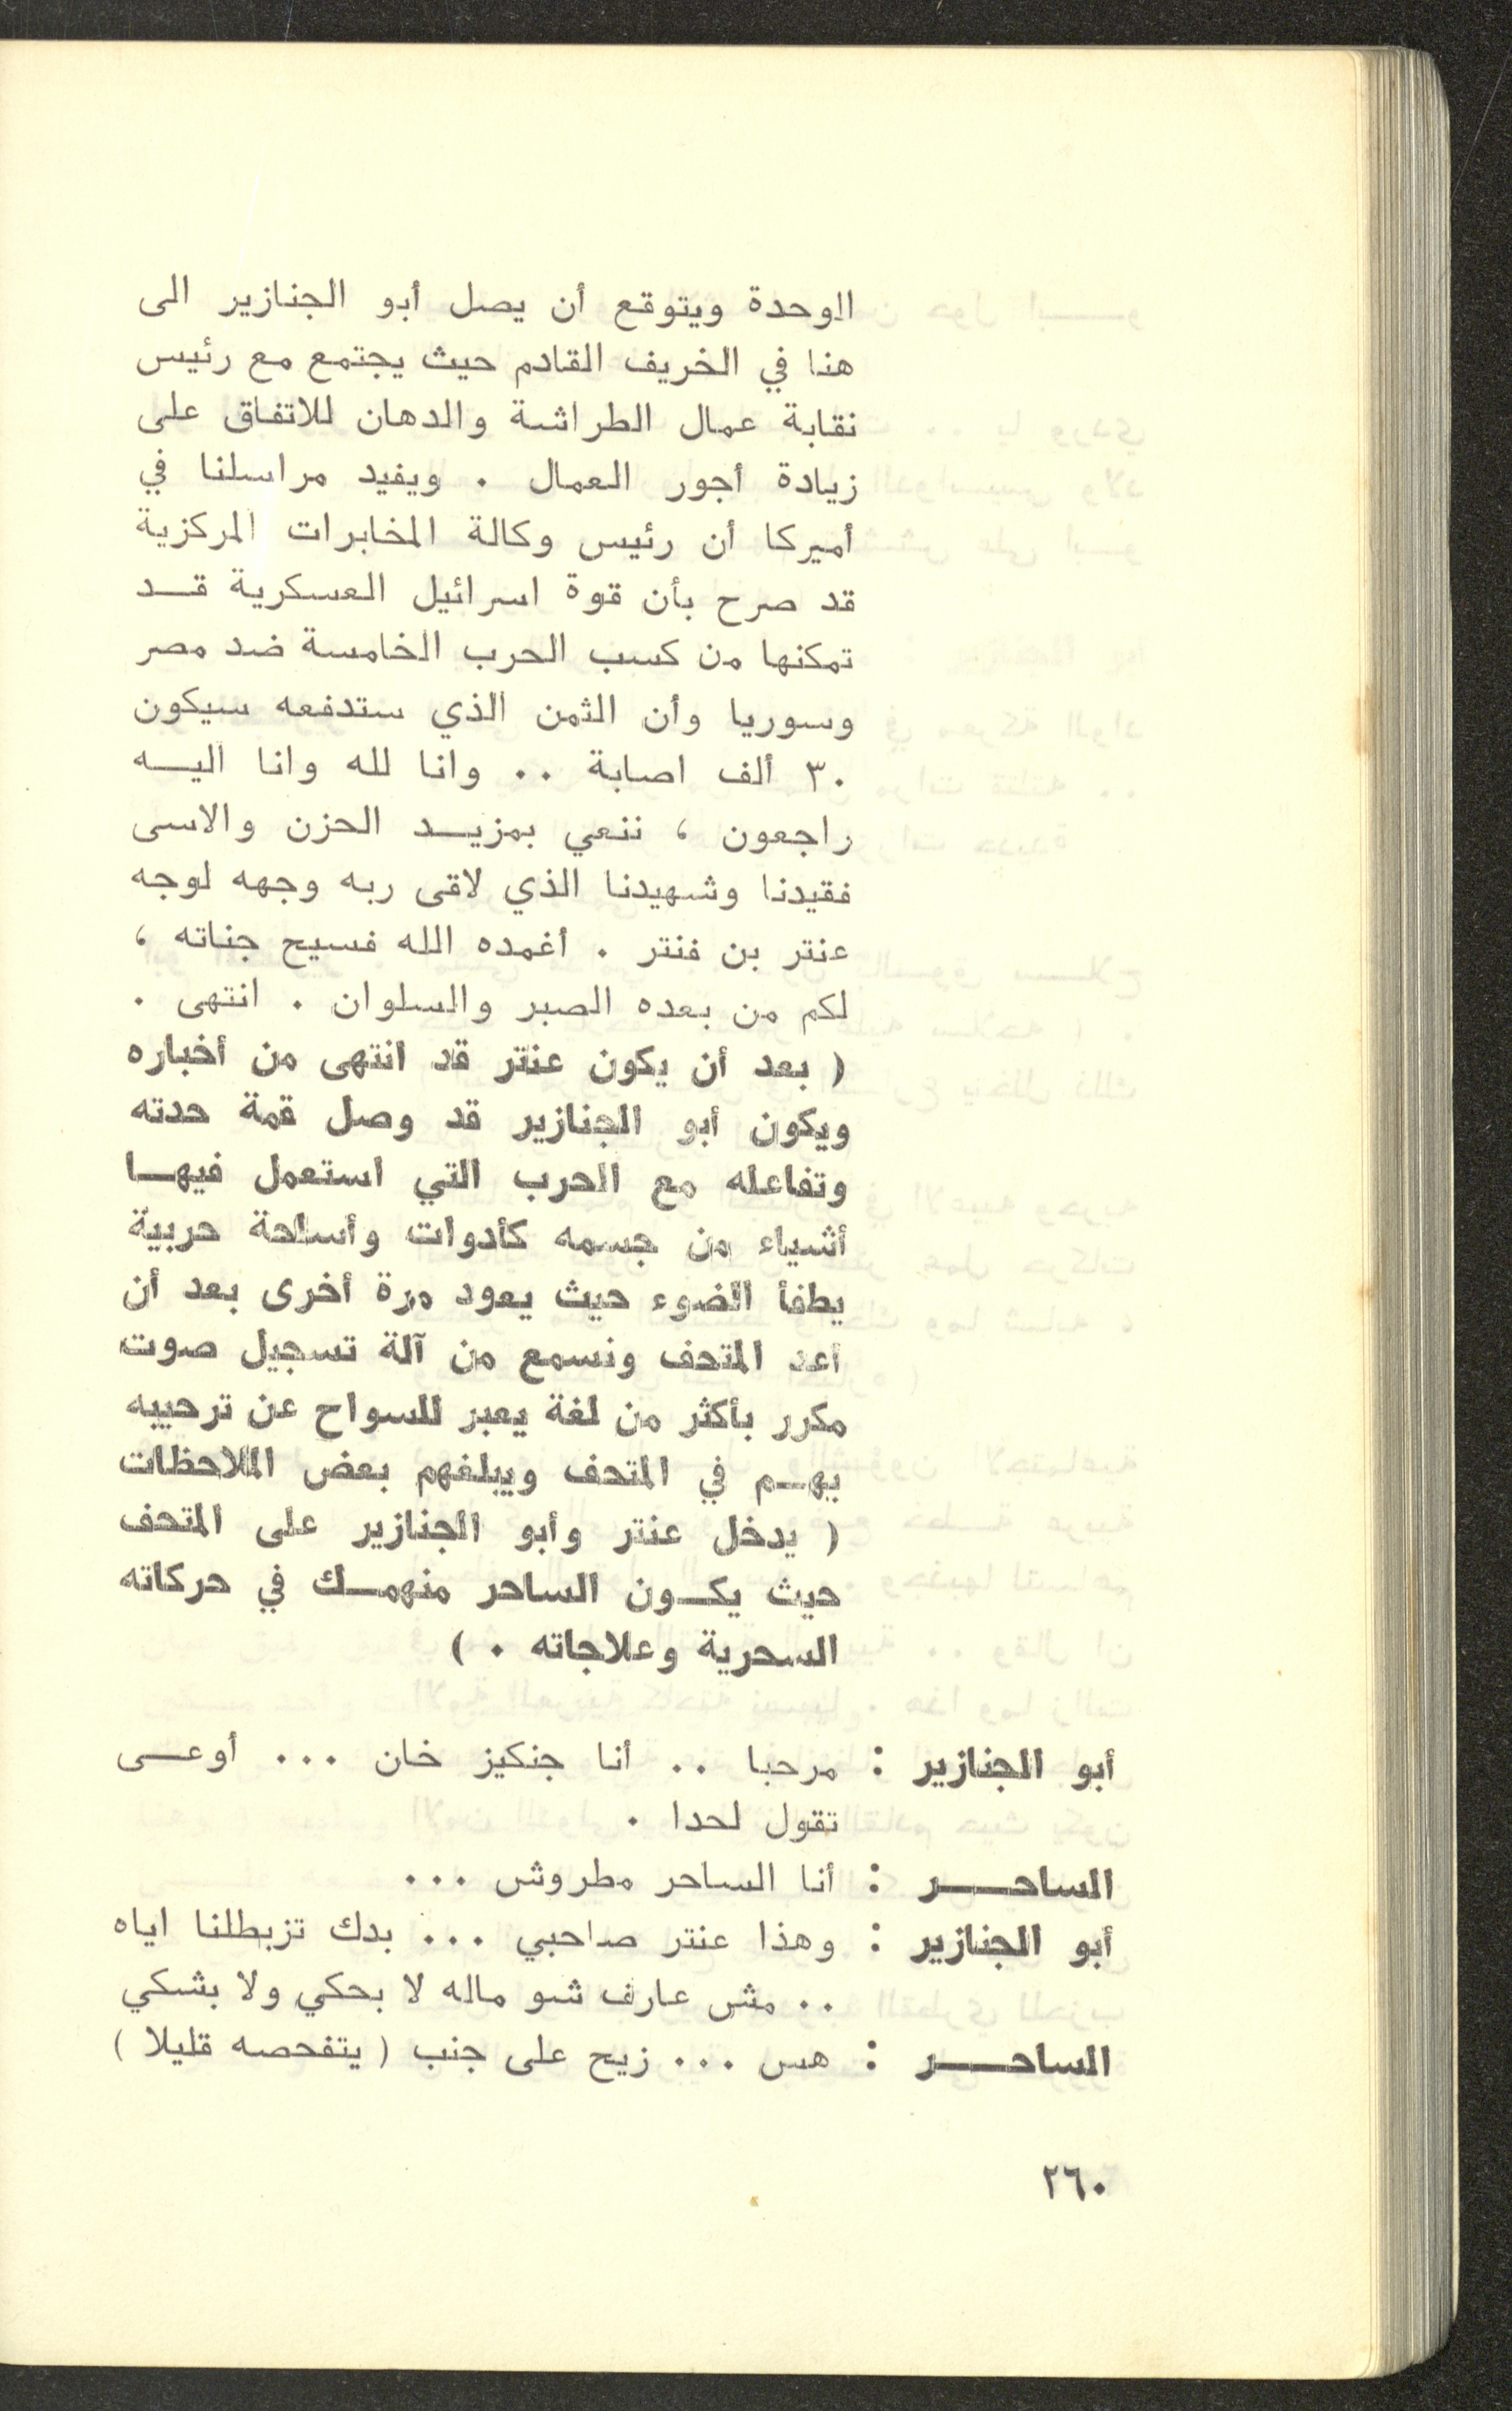 الوحدة ويتوقع أن يصل أبو الجنازير الى
هنا في الخريف القادم حيث يجتمع مع رئيس
نقابة عمال الطراشة والدهان للاتفاق على
زيادة أجور العمال . ويفيد مراسلنا في
أميركا أن رئيس وكالة المخابرات المركزية
قد صرح بأن قوة اسرائيل العسكرية قد
تمكنها من كسب الحرب الخامسة ضد مصر
وسوريا وأن الثمن الذي ستدفعه سيكون
٣٠ ألف اصابة .. وانا لله وانا اليه
راجعون ، ننعي بمزيد الحزن والاسى
فقيدنا وشهيدنا الذي لاقى ربه وجهه لوجه
عنتر بن فنتر . أغمده الله فسيح جناته ،
لكم من بعده الصبر والسلوان . انتهى .
( بعد أن يكون عنتر قد انتهى من أخباره
ويكون أبو الجنازير قد وصل قمة حدته
وتفاعله مع الحرب التي استعمل فيها
أشياء من جسمه كأدوات وأسلحة حربية
يطفأ الضوء حيث يعود مرة أخرى بعد أن
أعد المتحف ونسمع من آلة تسجيل صوت
مكرر بأكثر من لغة يعبر للسواح عن ترحيبه
بهم في المتحف ويبلغهم بعض الملاحظات
( يدخل عنتر وأبو الجنازير على المتحف
حيث يكون الساحر منهمك في حركاته
السحرية وعلاجاته . )
أبو الجنازير : مرحبا .. أنا جنكيز خان ... أوعى
تقول لحدا .
الساحر : أنا الساحر مطروش ...
أبو الجنازير : وهذا عنتر صاحبي ... بدك تزبطلنا اياه
.. مش عارف شو ماله لا بحكي ولا بشكي
الساحر : هس ... زيح على جنب ( يتفحصه قليلا )
٢٦٠